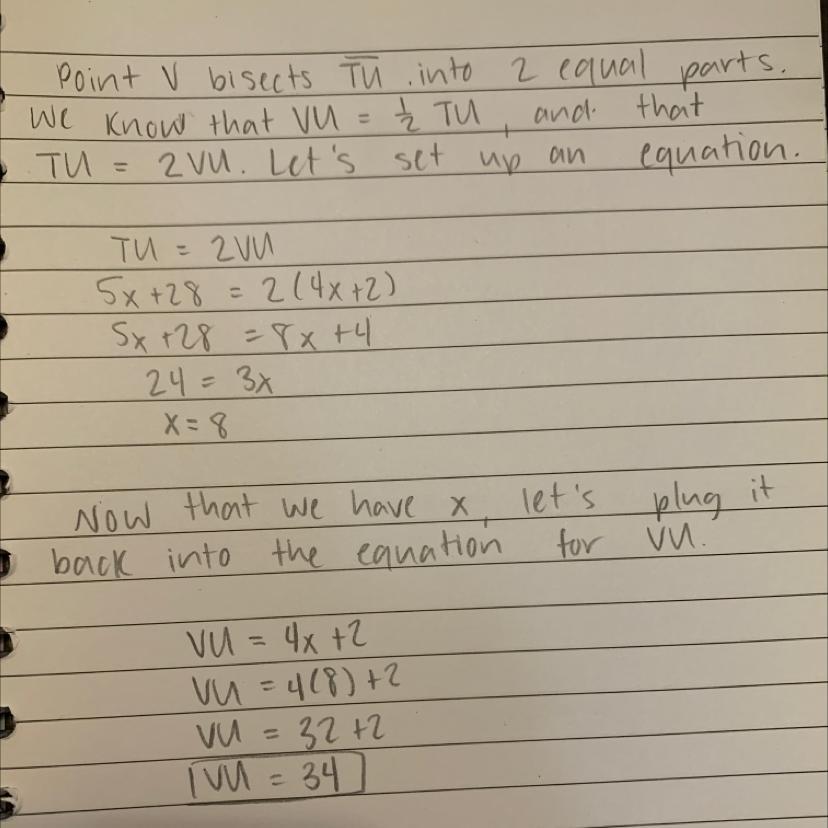 Point V bisects T̅U̅ into 2 equal parts.
We know that VU = ½ TU, and that
TU = 2VU. Let's set up an equation.
TU = 2VU
5x+28 = 2(4x+2)
5x+28 = 8x+4
24 = 3x
x = 8
Now that we have x, let's plug it
back into the equation for VU.
VU = 4x+2
VU = 4(8)+2
VU = 32+2
VU = 34